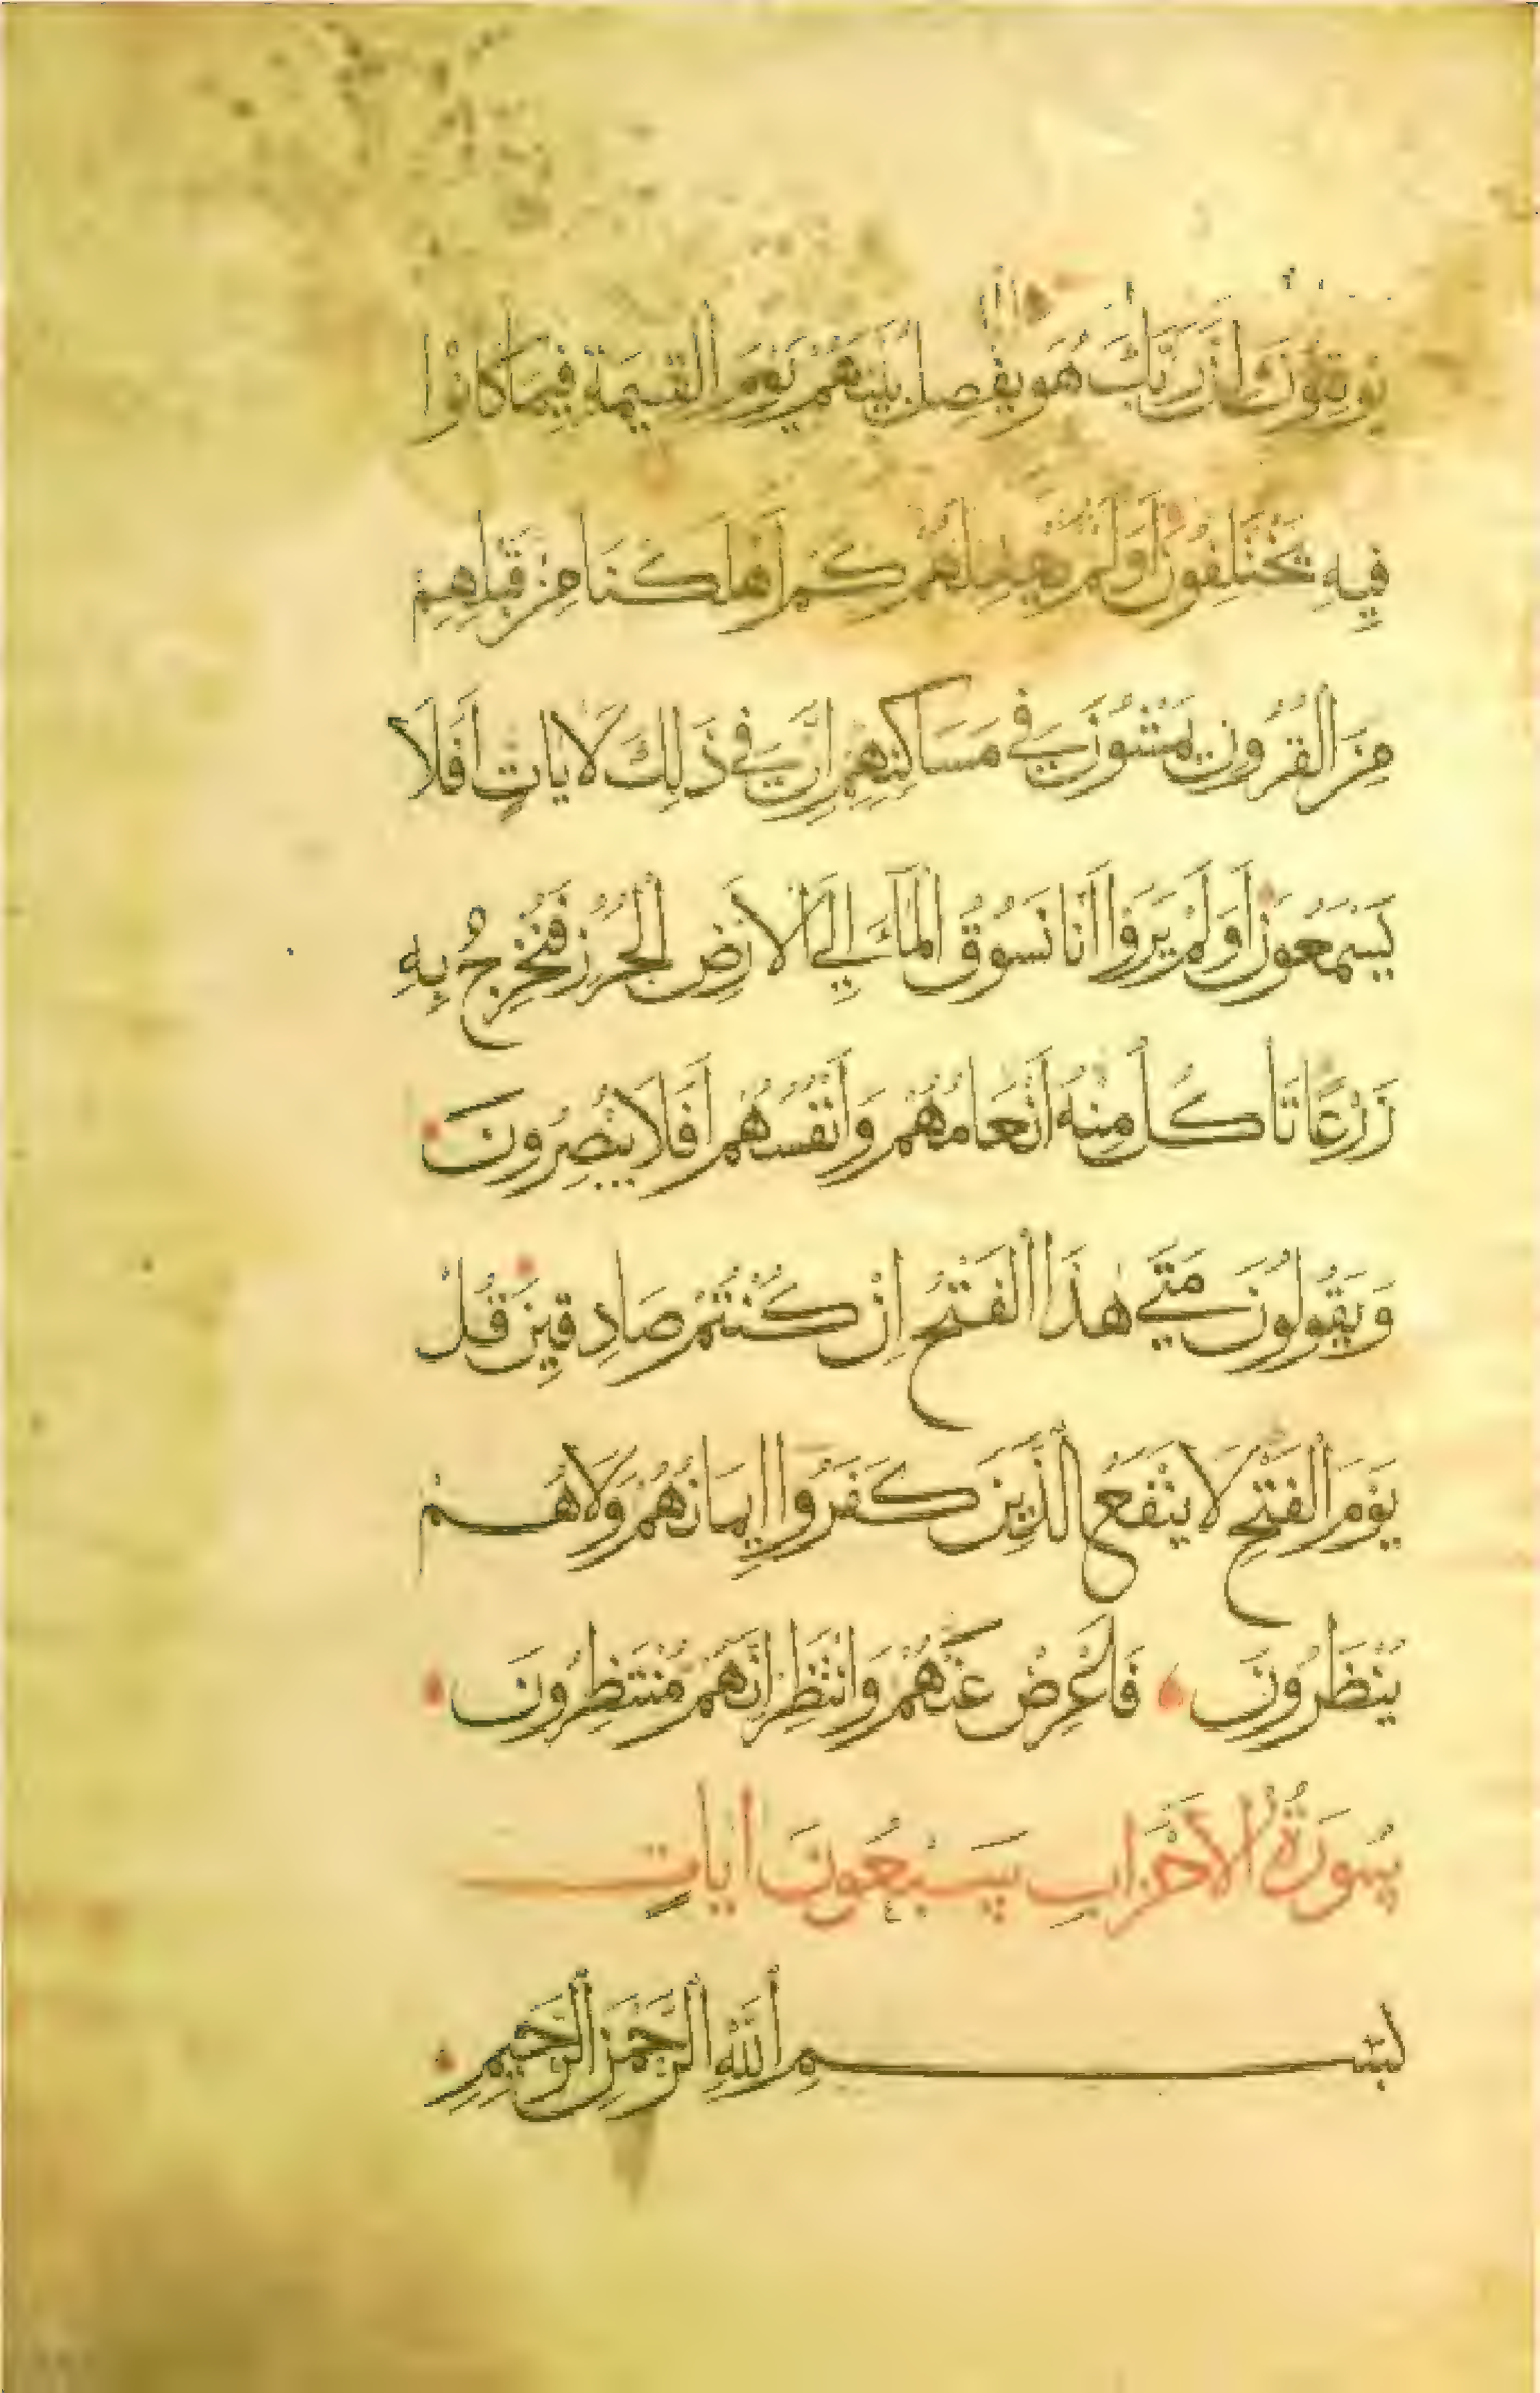 يُوقِنُونَ اِنَّ رَبَّكَ هُوَ يَفْصِلُ بَيْنَهُمْ يَوْمَ الْقِيٰمَةِ فِيمَا كَانُوْا
فِيهِ يَخْتَلِفُونَ اَوَلَمْ يَهْدِ لَهُمْ كَمْ اَهْلَكْنَا مِنْ قَبْلِهِمْ
مِنَ الْقُرُونِ يَمْشُونَ فِي مَسَاكِنِهِمْ اِنَّ فِي ذَلِكَ لَاٰيَاتٍ اَفَلَا
يَسْمَعُونَ اَوَلَمْ يَرَوْا اَنَّا نَسُوقُ الْمَآءَ اِلَي الْاَرْضِ الْجُرُزِ فَنُخْرِجُ بِهِ
زَرْعًا تَاْكُلُ مِنْهُ اَنْعَامُهُمْ وَاَنْفُسُهُمْ اَفَلَا يُبْصِرُونَ
وَيَقُولُونَ مَتَي هٰذَا الْفَتْحُ اِنْ كُنْتُمْ صَادِقِينَ قُلْ
يَوْمَ الْفَتْحِ لَا يَنْفَعُ الَّذِينَ كَفَرُوا اِيمَانُهُمْ وَلَا هُمْ
يُنْظَرُونَ فَاَعْرِضْ عَنْهُمْ وَانْتَظِرْ اِنَّهُمْ مُنْتَظِرُونَ
سُورَةُ الْاَحْزَابِ سَبْعُونَ اٰيَاتٍ
بِسْمِ اللّٰهِ الرَّحْمٰنِ الرَّحِيمِ